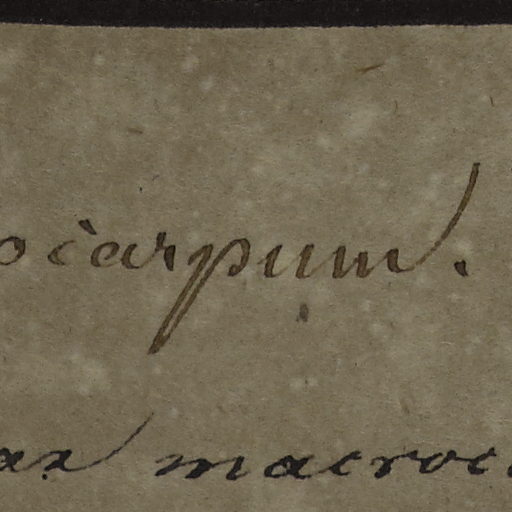 ocarpum.
ax macroc